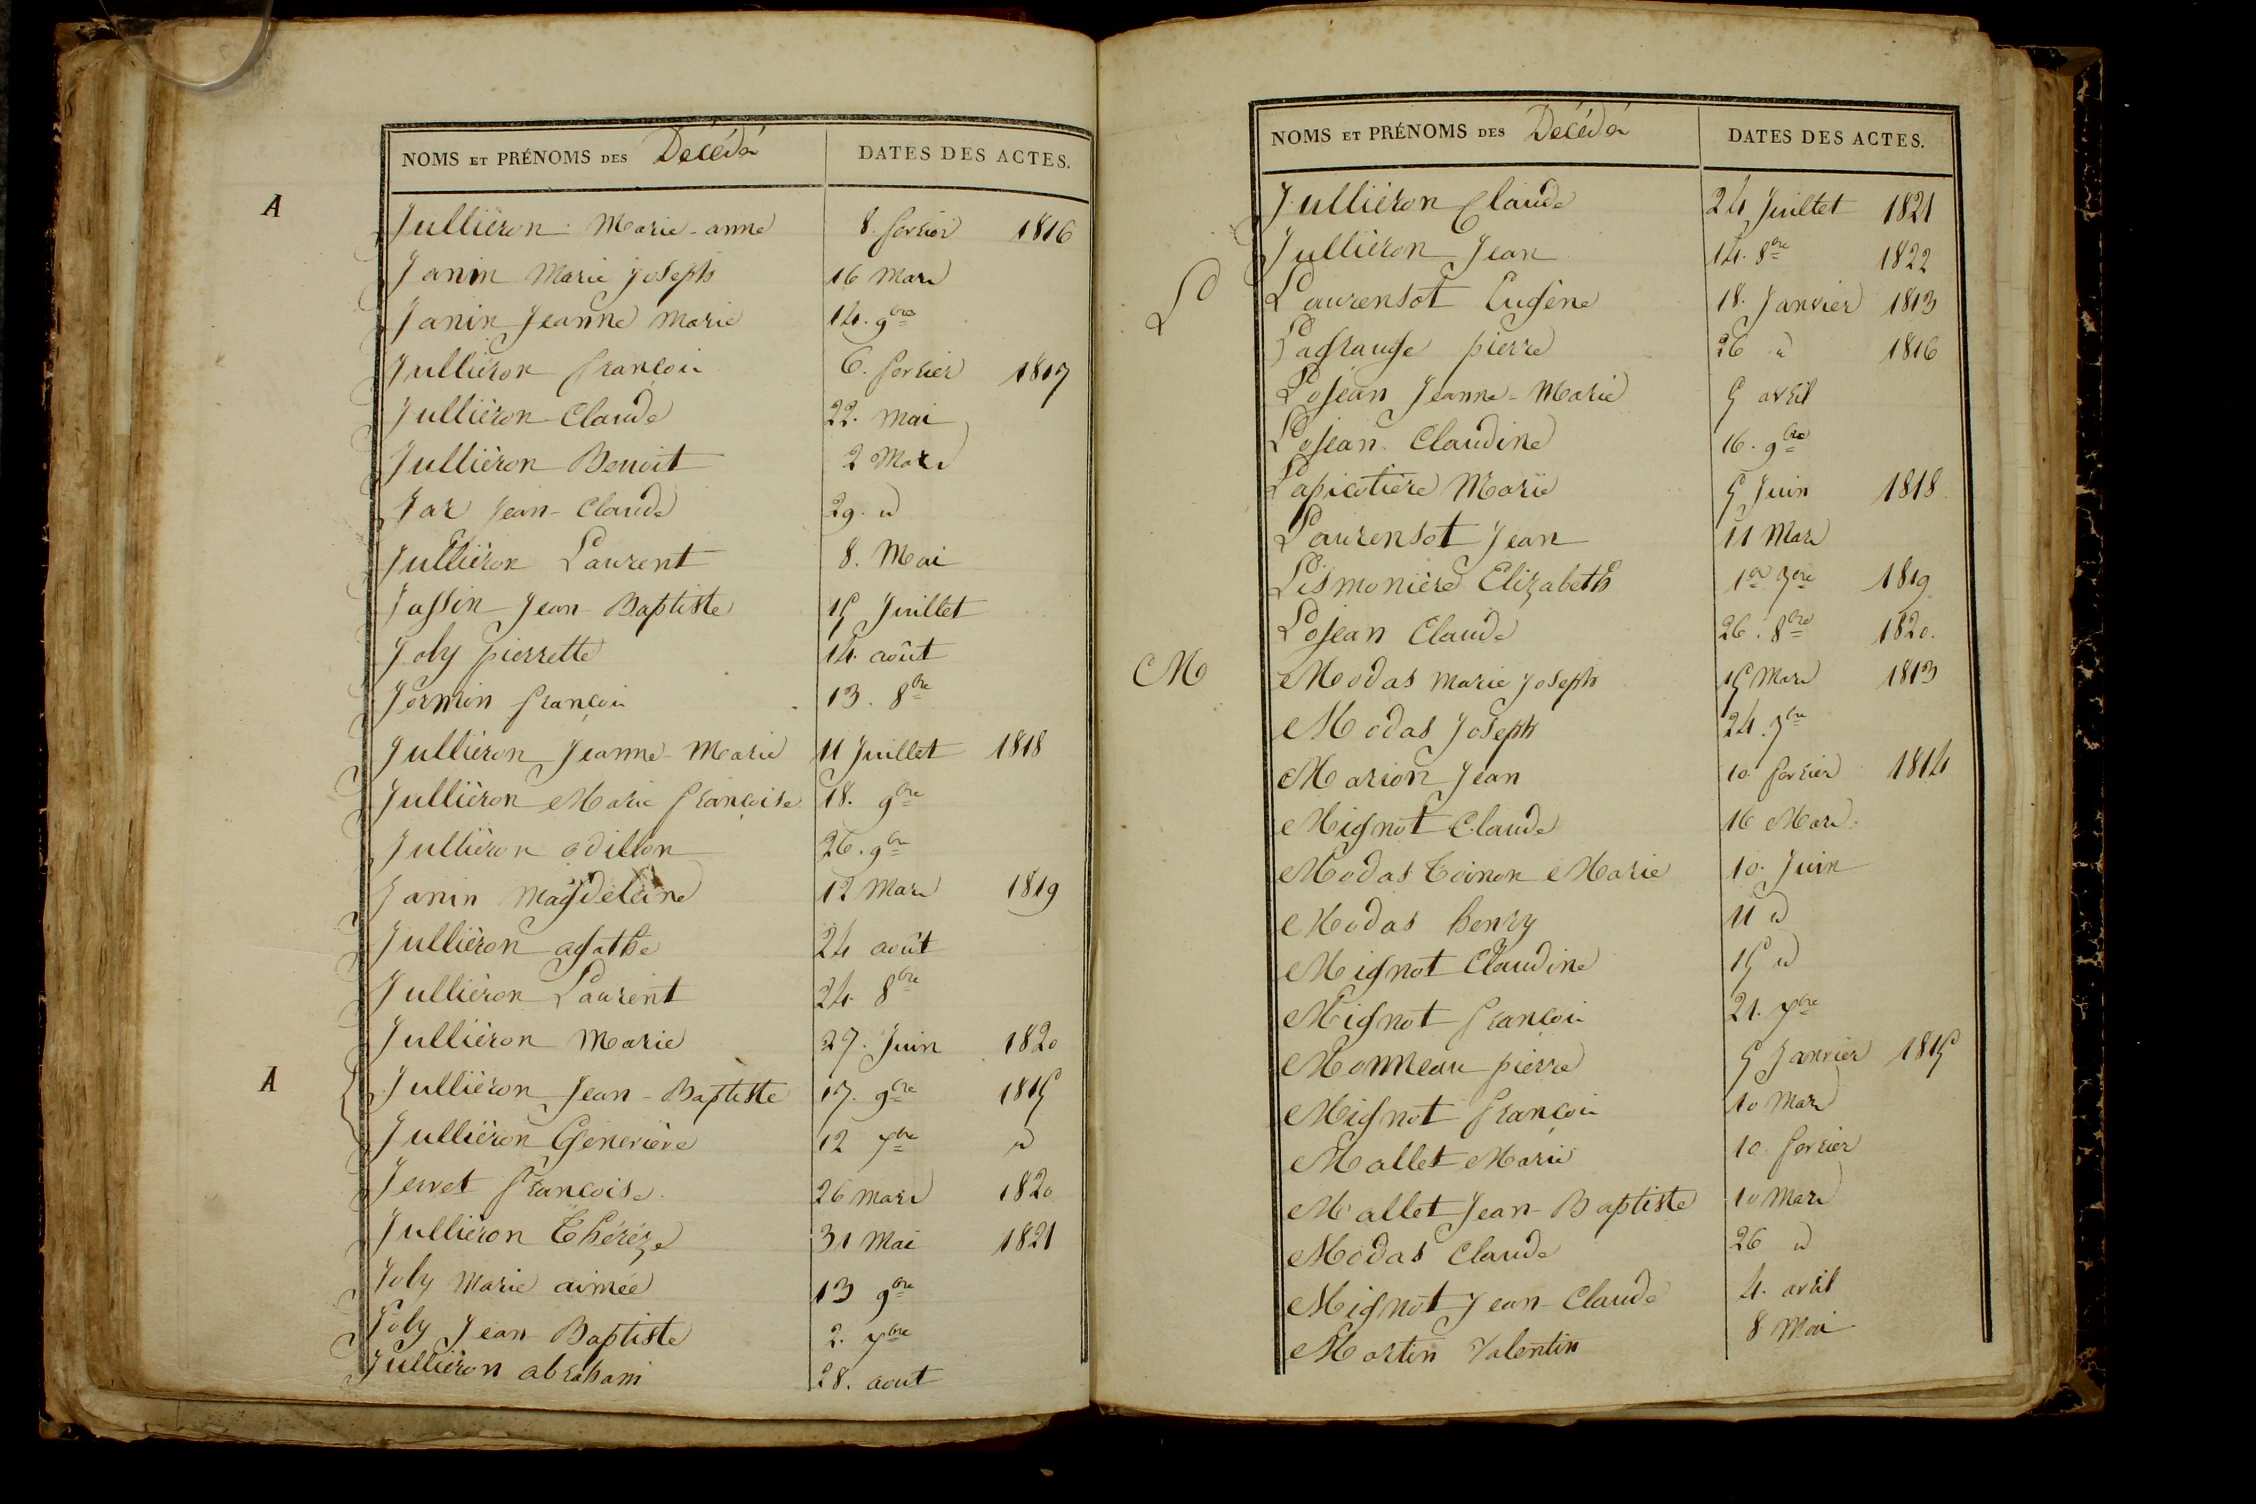 NOMS ET PRÉNOMS DES Décédés DATES DES ACTES.
A
Jullièron Marie-anne 8. fevrier 1816
Janin Marie joseph 16 Mars
Janin Jeanne Marie 14. 9bre
Jullièron françois 6. fevrier 1817
Jullièron Claude 22. Mai
Jullièron Benoit 2 Mars
Jar Jean-Claude 29. d
Jullièron Laurent 8. Mai
Jassin Jean-Baptiste 15 Juillet
Joly pierrette 14. août
Jermin françois 13. 8bre
Jullièron Jeanne-Marie 11 Juillet 1818
Jullièron Marie françoise 18. 9bre
Jullièron odillon 26. 9bre
Janin Magdeleine 12 Mars 1819
Jullièron agathe 24 août
Jullièron Laurent 24. 8bre
Jullièron Marie 27. Juin 1820
A
Jullièron Jean-Baptiste 17. 9bre 1815
Jullièron Geneviève 12 Xbre d
Jervet françoise 26 mars 1820
Jullièron Thérèze 31 Mai 1821
Joly Marie aimée 13 9bre
Joly Jean Baptiste 2. Xbre
Jullièron abraham 28. aout
NOMS ET PRÉNOMS DES Décédés DATES DES ACTES.
Jullièron Claude 24 Juillet 1821
Jullièron Jean 14. 8bre 1822
L
Laurensot Eugène 18. Janvier 1813
Lagrange pierre 26 d 1816
Lojean Jeanne-Marie 5 avril
Lojean Claudine 16. 9bre
Lapicotière Marie 5 Juin 1818
Laurensot Jean 11 Mars
Lismonière Elizabeth 1er 7bre 1819
Lojean Claude 26. 8bre 1820.
M
Modas marie joseph 15 Mars 1813
Modas Joseph 24. 7bre
Marion Jean 10 fevrier 1814
Mignot Claude 16 Mars
Modas Toinon Marie 10. Juin
Modas henry 11 d
Mignot Claudine 15 d
Mignot françois 21. Xbre
Monneau pierre 5 Janvier 1815
Mignot françois 10 Mars
Mallet Marie 10. fevrier
Mallet Jean-Baptiste 10 Mars
Modas Claude 26 d
Mignot Jean-Claude 4. avril
Martin Valentin 8 Mai